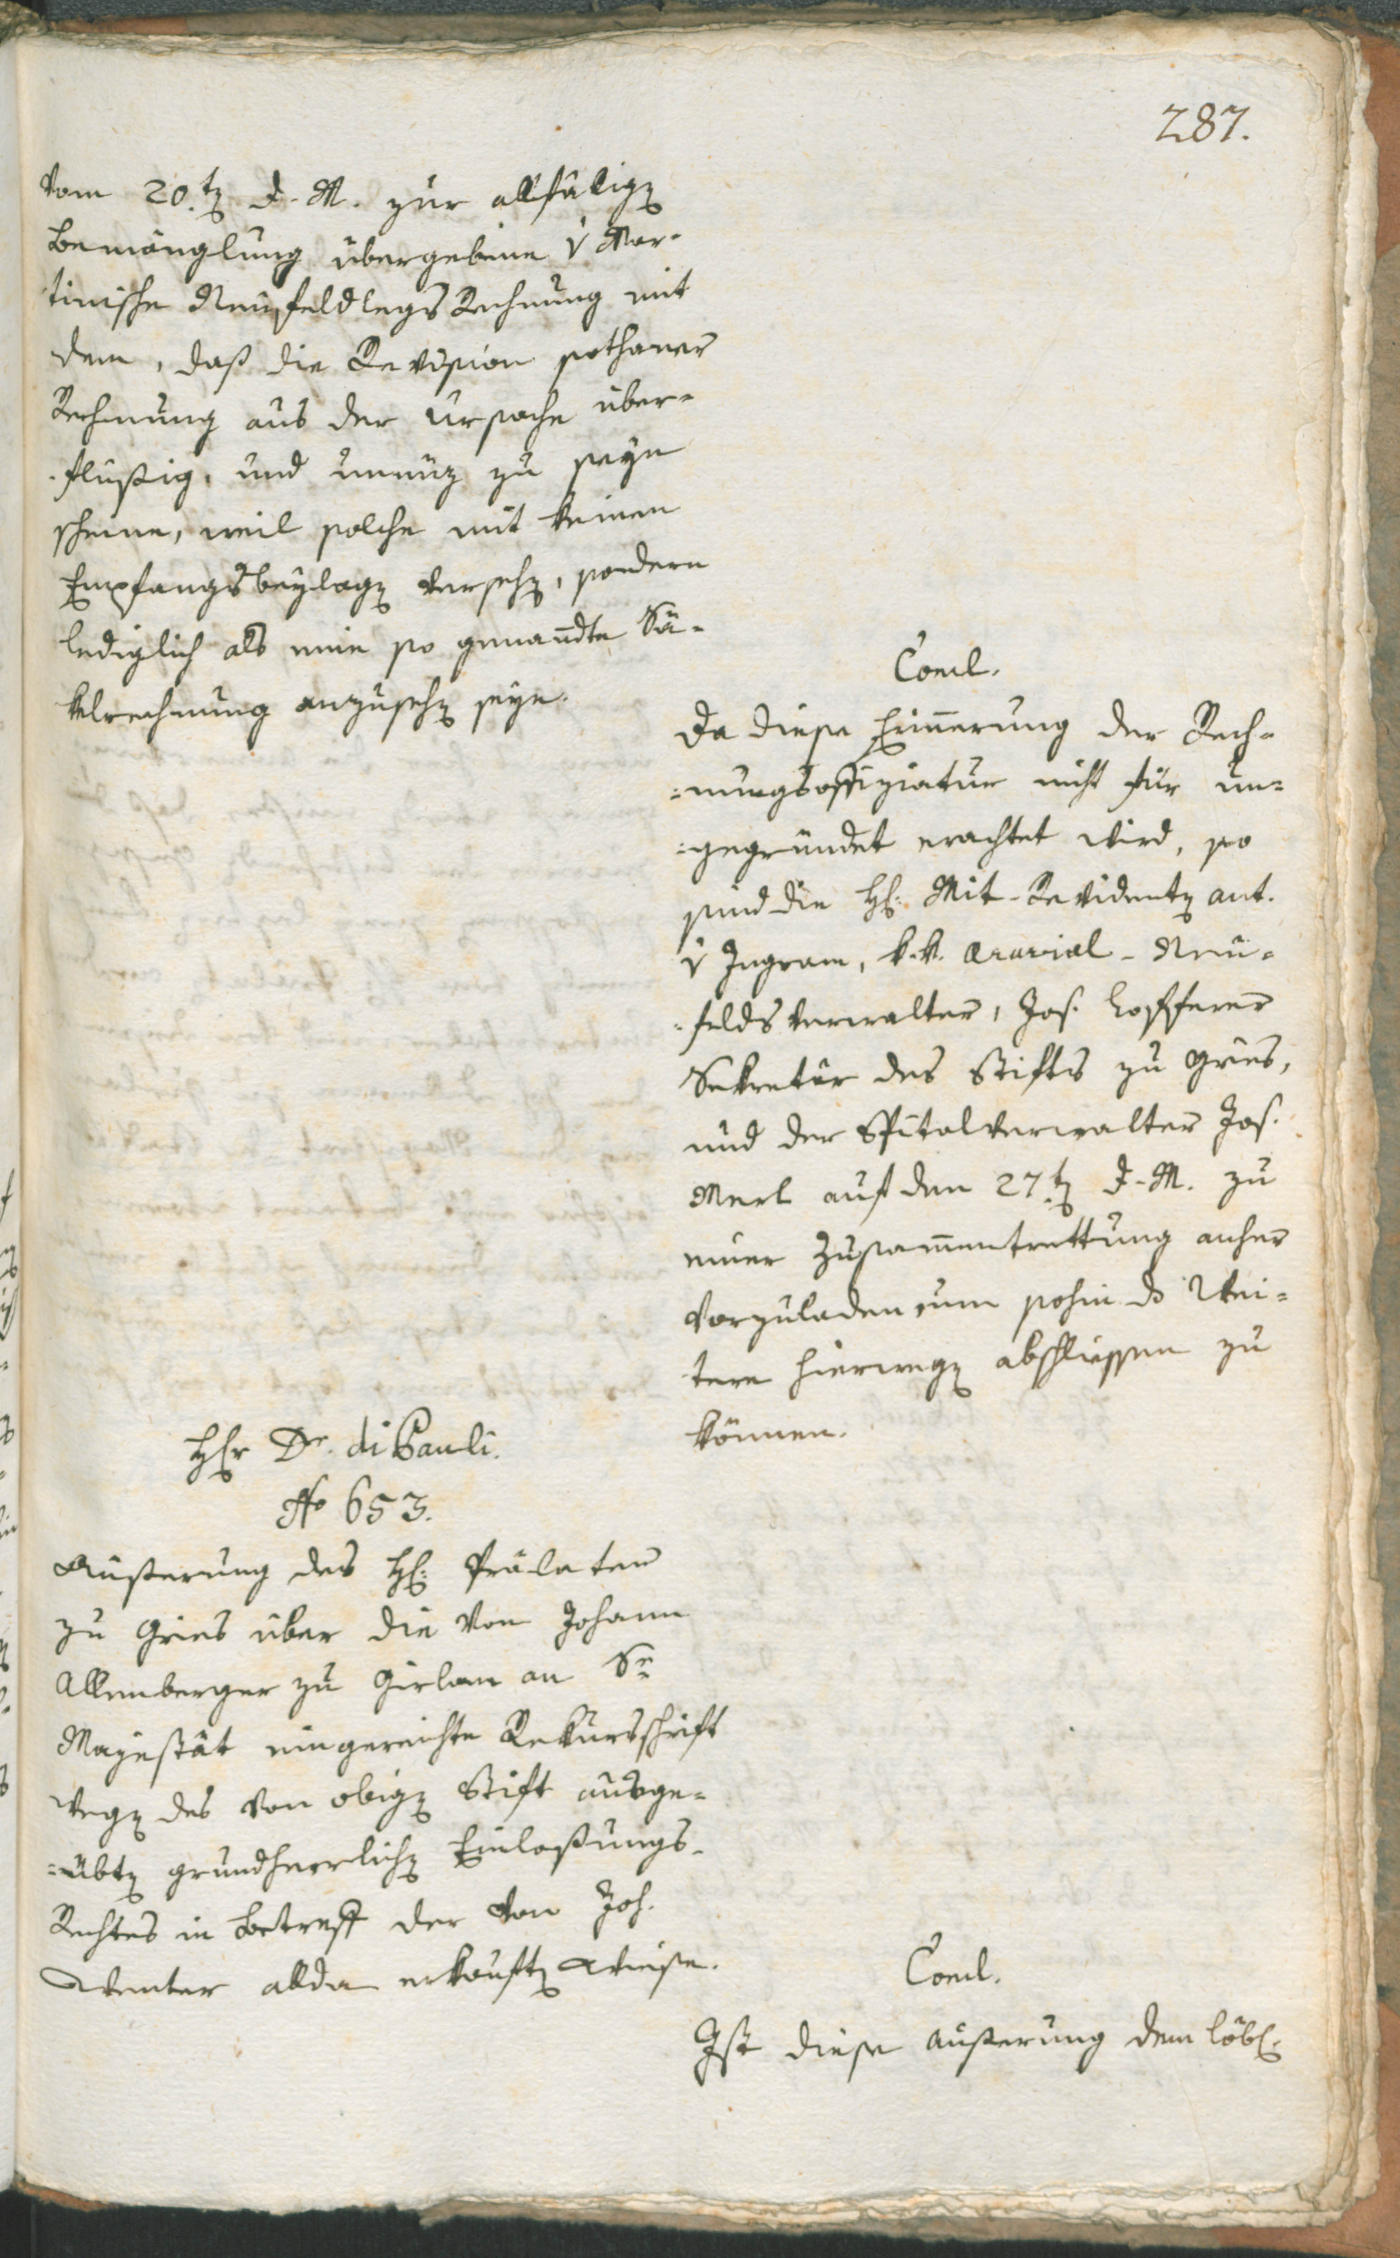 287.
vom 20.t(en) d. M. zur allfälig(en)
Bemänglung übergebene v Mar-
tinische Neufeldlegs Rechnung mit
dem, daß die Revision sothaner
Rechnung aus der Ursache über-
flüßig, und unnüz zu seyn
scheine, weil solche mit keinen
Empfangsbeylag(en) verseh(en), sondern
lediglich als eine so genañdte Sä-
kelrechnung anzuseh(en) seye.
Concl.
Da diese Erinnerung der Rech-
=nungsoffiziatur nicht für un=
=gegründet erachtet wird, so
sind die H: Mit-Revident(en) ant.
v Ingram, k.k. Ararial-Neu=
=feldsverwalter, Jos.
Sekretär des Stifts zu Gries,
und der Spitalverwalter Jos.
Merl auf den 27.t(en) d. M. zu
einer Zusam̄entrettung anher
vorzuladen um sohin d Wei=
tere hierweg(en) abschliessen zu
können.
HEr Dr. di Pauli.
No 653.
Äußerung des H: Prälaten
zu Gries über die von Johann
Allenberger zu Girlan an Sr
Majestät eingereichte Rekursschrift
weg(en) des von obig(en) Stift ausge-
=übt(en) grundherrlich(en) Einlaßungs-
Rechtes in Betreff der von Joh.
alda erkauft(en) Wiese.
Concl.
Ist diese Äußerung dem löbl: